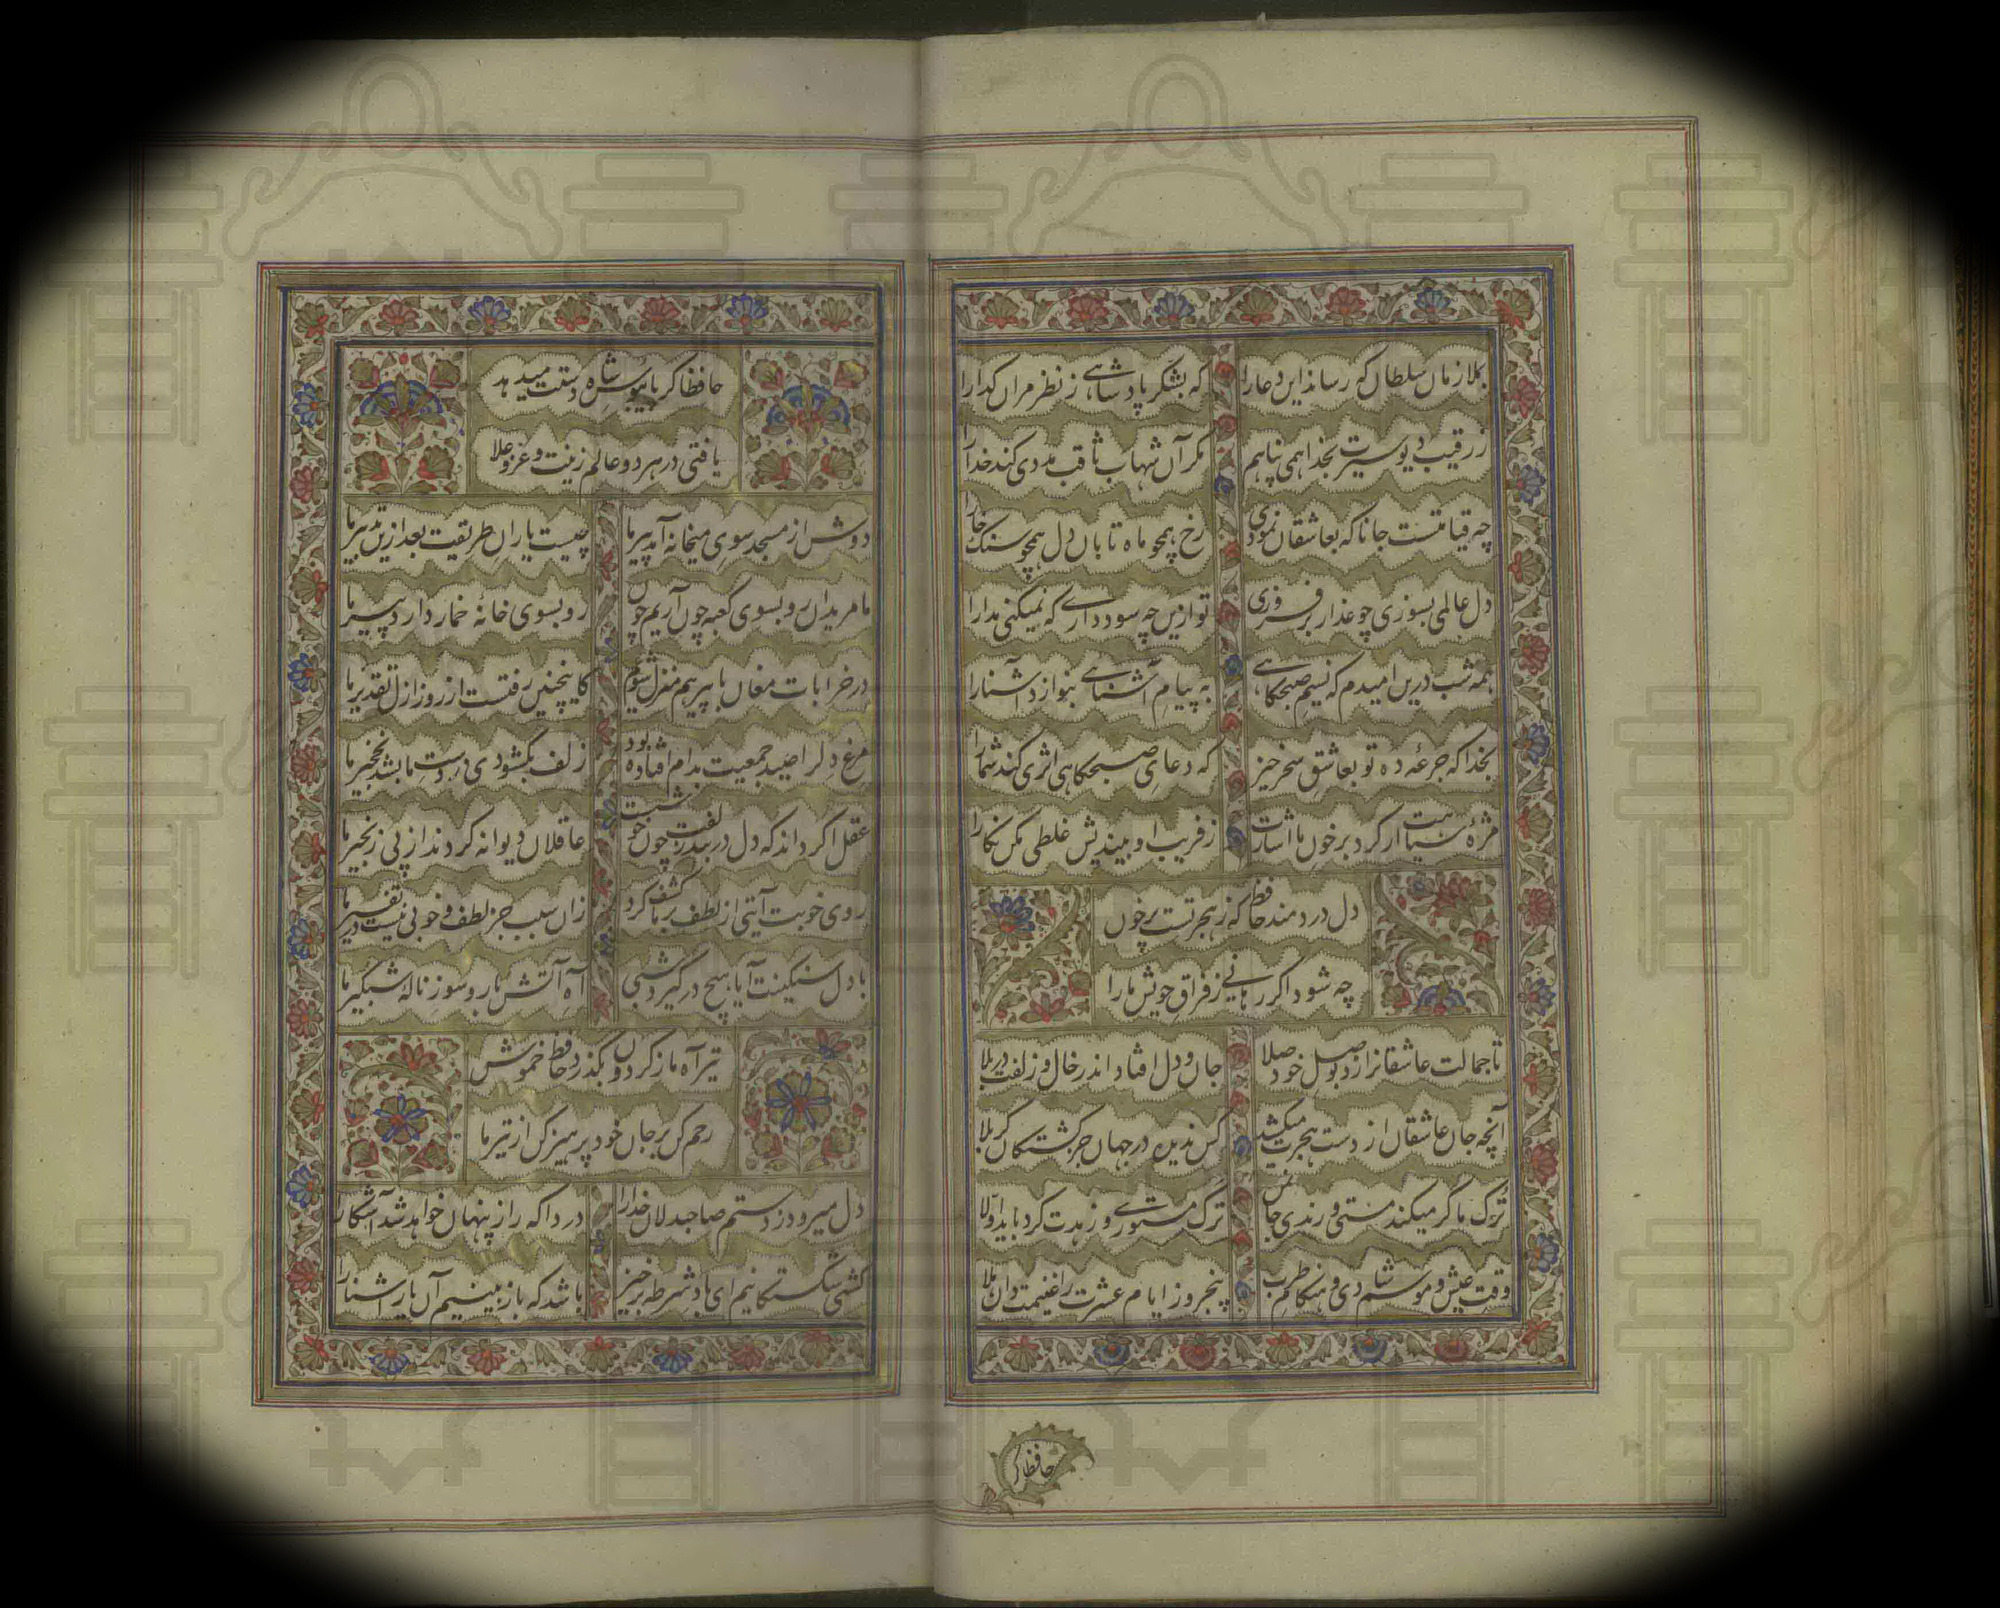 بملازمان سلطان که رساند این دعا را که بشکر پادشاهی ز نظر مران گدا را
ز رقیب دیو سیرت بخدا همی پناهم مگر آن شهاب ثاقب مددی کند خدا را
چه قیامتست جانا که بعاشقان نمودی رخ همچو ماه تابان دل همچو سنگ خارا
دل عالمی بسوزی چو عذار برفروزی تو ازین چه سود داری که نمیکنی مدارا
همه شب درین امیدم که نسیم صبحگاهی به پیام آشنائی بنوازد آشنا را
بخدا که جرعه ده تو بعاشق سحر خیز که دعای صبحگاهی اثری کند شما را
مژهٔ سیاهت ار کرد بر خون ما اشارت ز فریب او بیندیش غلطی مکن نگارا
دل دردمند حافظ که ز هجر تست پر خون
چه شود اگر رهائی ز فراق خویش ما را
تا جمالت عاشقانرا زد بوصل خود صلا جان و دل افتاد اندر خال و زلفت در بلا
آنچه جان عاشقان از دست هجرت میکشد کس ندیده در جهان جز کشتگان کربلا
ترک ما گر میکند مستی و رندی جان من ترک مستوری و زهدت کرد باید اولا
وقت عیش و موسم شادی و هنگام طرب پنجروز ایام عشرت را غنیمت دان هلا
حافظا گر
حافظا گر پایبوس شاه دستت میدهد
یافتی در هر دو عالم زینت و عز و علا
دوش از مسجد سوی میخانه آمد پیر ما چیست یاران طریقت بعد ازین تدبیر ما
ما مریدان رو بسوی کعبه چون آریم چون رو بسوی خانهٔ خمار دارد پیر ما
در خرابات مغان با پیر هم منزل شویم کاینچنین رفتست از روز ازل تقدیر ما
مرغ دل را صید جمعیت بدام افتاده بود زلف بگشودی ز دست ما بشد نخجیر ما
عقل اگر داند که دل در بند زلفت چون خوشست عاقلان دیوانه گردند از پی زنجیر ما
روی خوبت آیتی از لطف بر ما کشف کرد زان سبب جز لطف و خوبی نیست در تفسیر ما
با دل سنگینت آیا هیچ در گیرد شبی آه آتش بار و سوز نالهٔ شبگیر ما
تیر آه ما ز گردون بگذرد حافظ خموش
رحم کن بر جان خود پرهیز کن از تیر ما
دل میرود ز دستم صاحبدلان خدا را دردا که راز پنهان خواهد شد آشکارا
کشتی شکستگانیم ای باد شرطه برخیز باشد که باز بینیم آن یار آشنا را